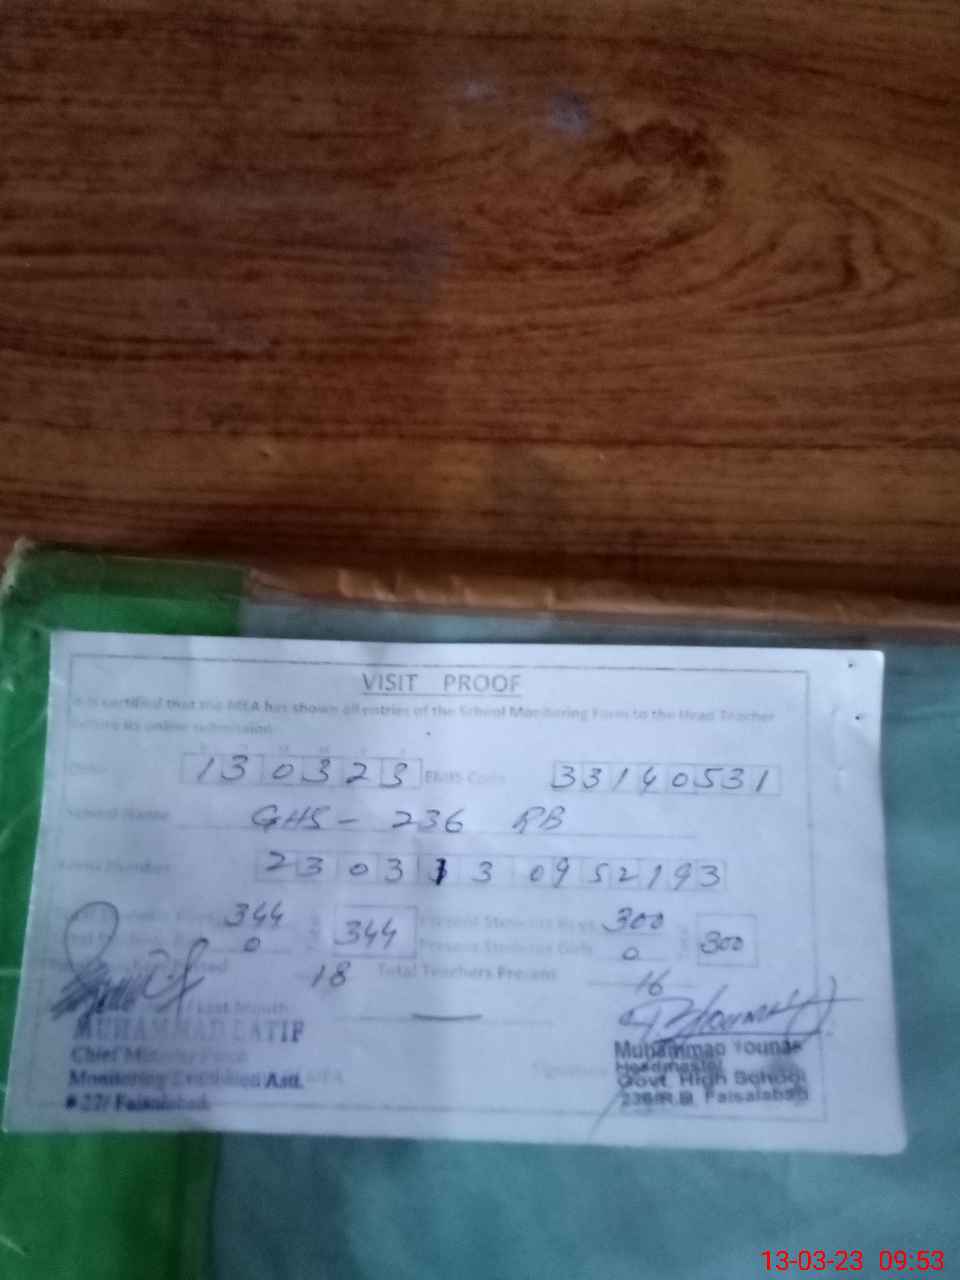 VISIT PROOF
It is certified that the MEA has shown all entries of the School Monitoring Form to the Head Teacher
before its online submission.
Date 130323 EMIS Code 33140531
School Name GHS - 236 RB
2303130952193
344 344 Present Students Boys 300 300
0 Present Students Girls 0
18 Total Teachers Present 16
Last Month
MUHAMMAD LATIF
Chief Minister
Monitoring Asst. MEA
# 22/ Faisalabad
Signature
Muhammad Younas
Headmaster
Govt. High School
236/R.B. Faisalabad
13-03-23 09:53